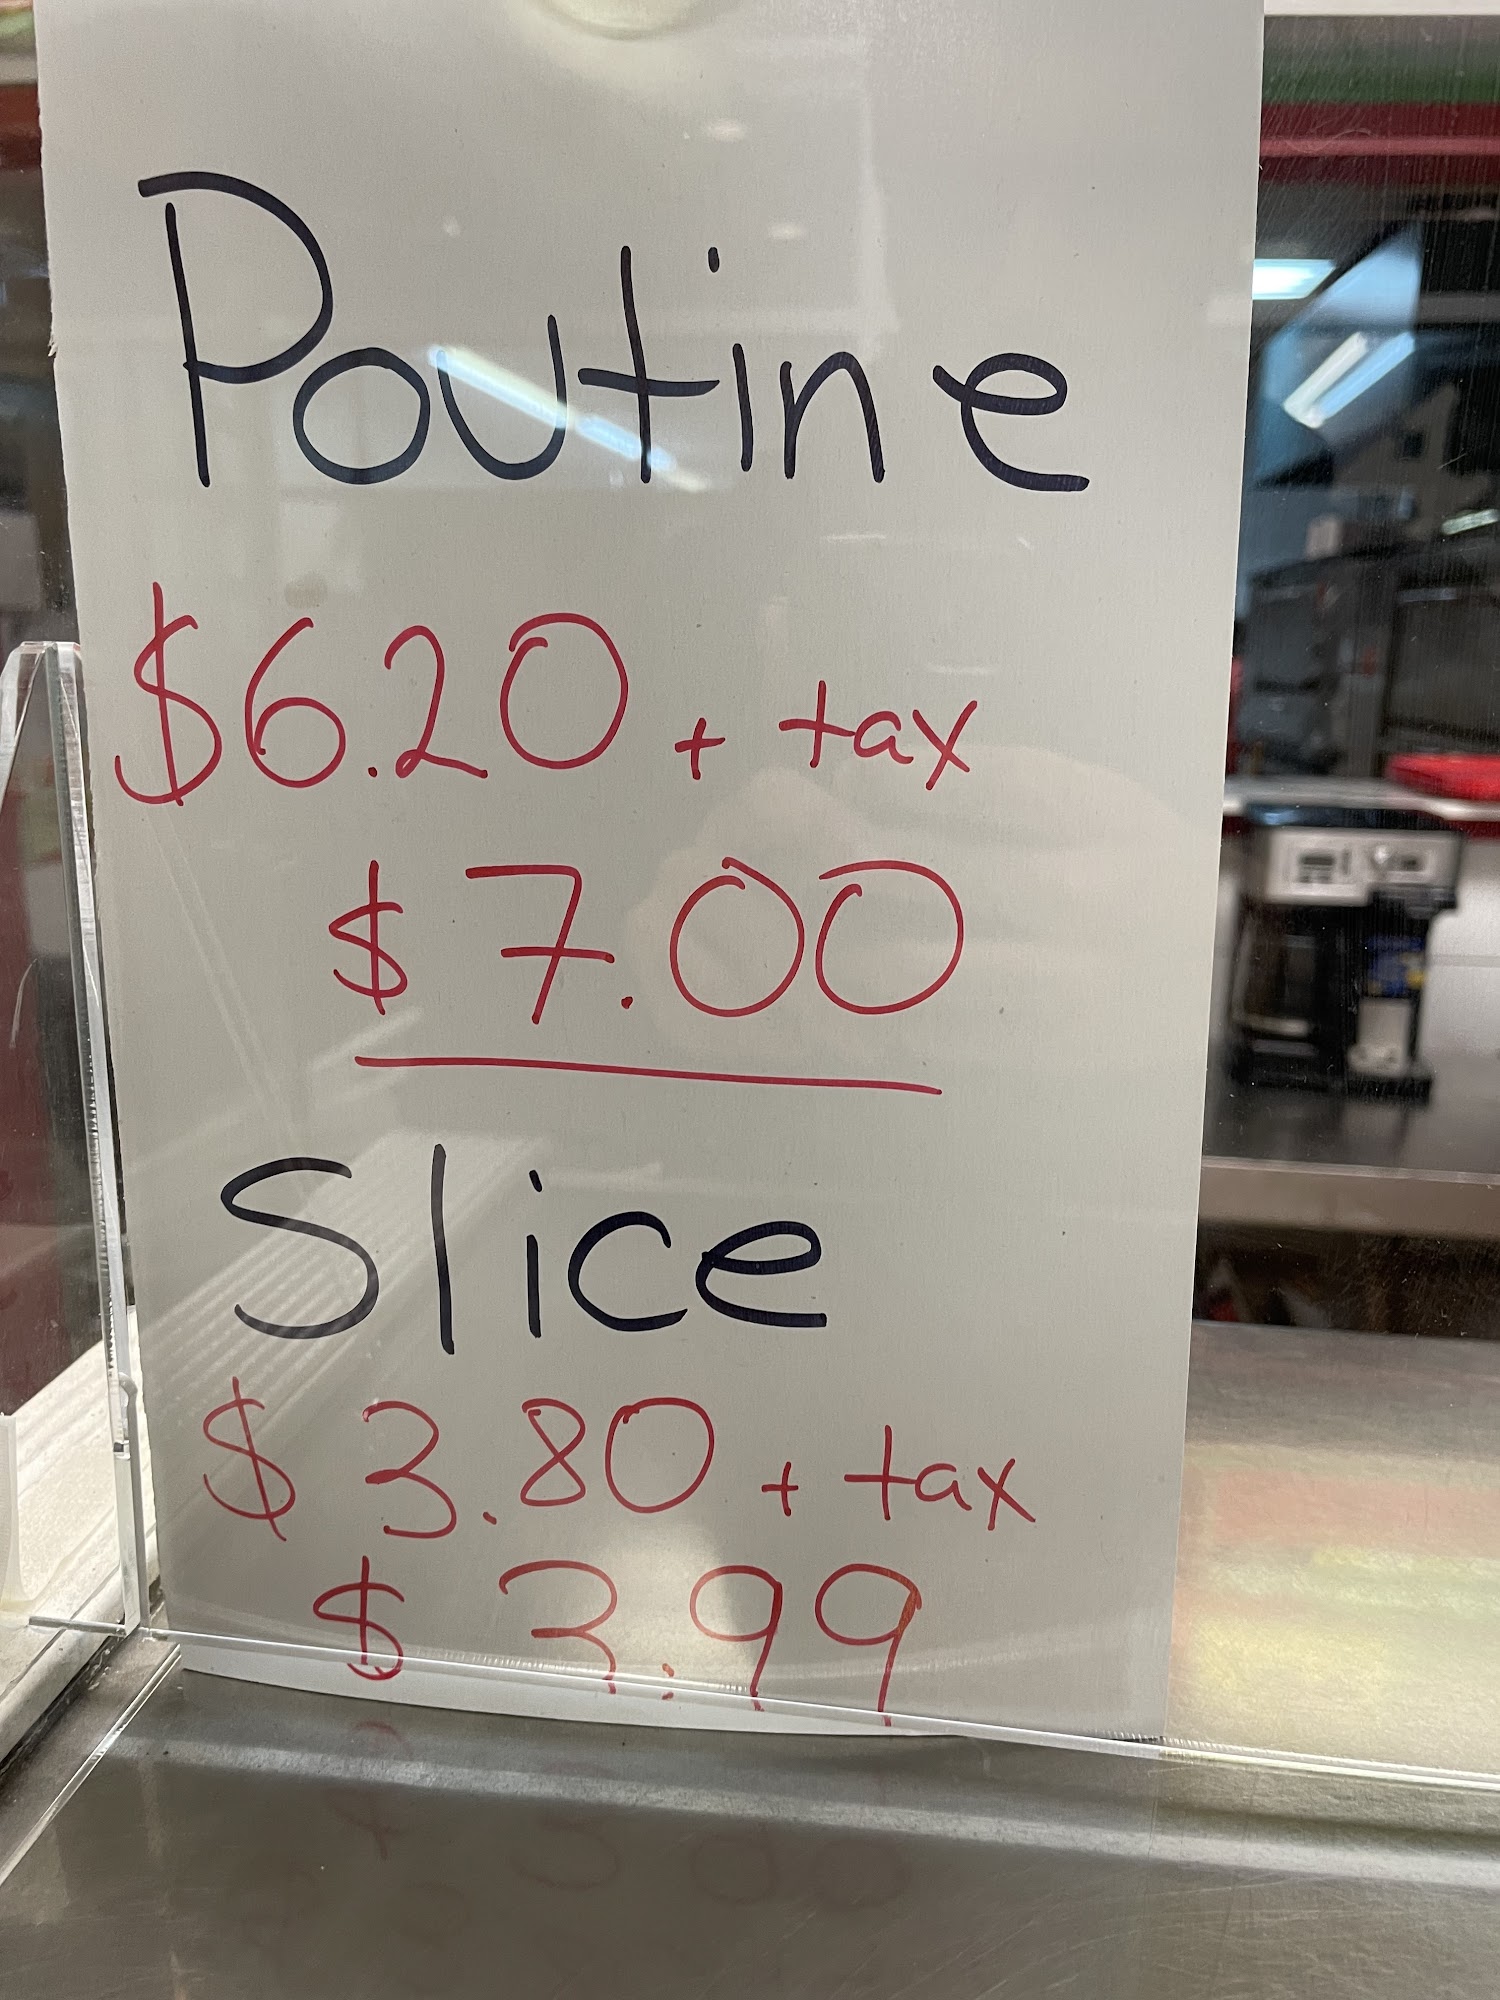 Poutine
$6.20 + tax
$7.00
Slice
$3.80 + tax
$3.99